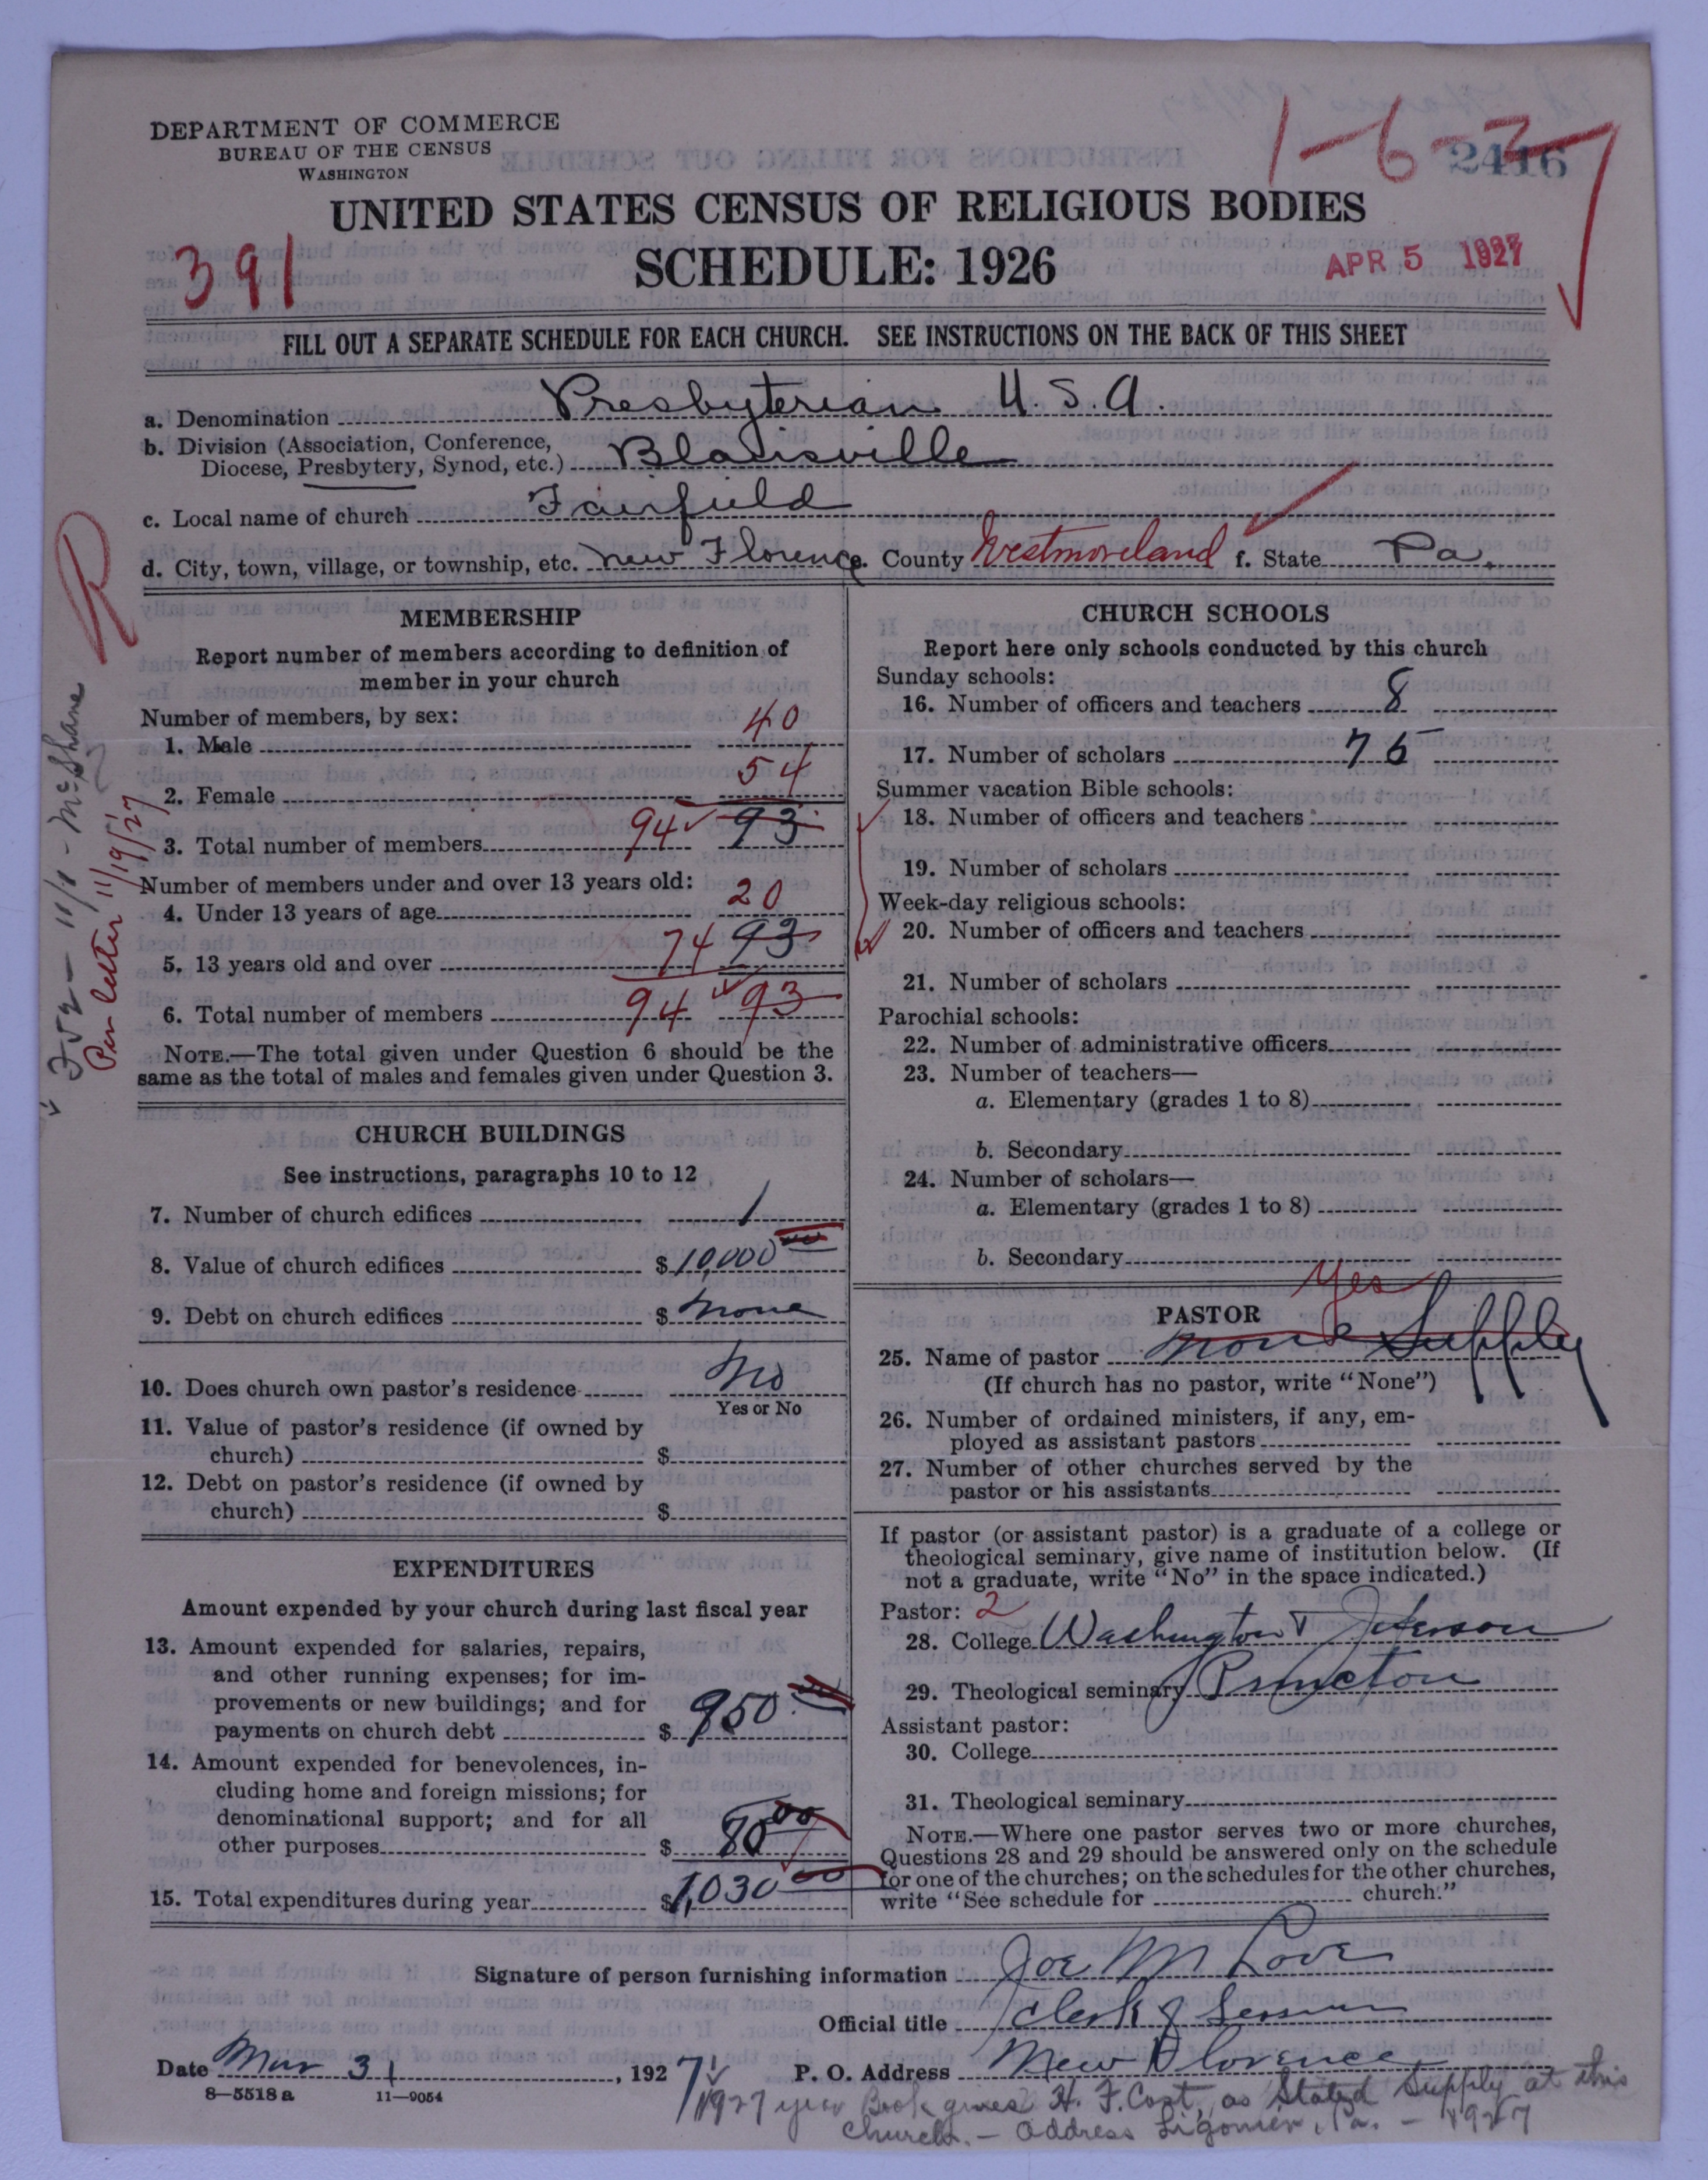 DEPARTMENT OF COMMERCE
BUREAU OF THE CENSUS
WASHINGTON
1-6-2
2416
UNITED STATES CENSUS OF RELIGIOUS BODIES
SCHEDULE: 1926
391
APR 5 1927
FILL OUT A SEPARATE SCHEDULE FOR EACH CHURCH. SEE INSTRUCTIONS ON THE BACK OF THIS SHEET
a. Denomination Presbyterian U.S.A.
b. Division (Association, Conference,
Diocese, Presbytery, Synod, etc.) Blairsville
c. Local name of church Fairfield
d. City, town, village, or township, etc. New Florence e. County Westmoreland f. State Pa.
MEMBERSHIP
Report number of members according to definition of
member in your church
Number of members, by sex:
1. Male 40
2. Female 54
3. Total number of members 94 93
Number of members under and over 13 years old:
4. Under 13 years of age 20
5. 13 years old and over 74 93
6. Total number of members 94 93
NOTE.—The total given under Question 6 should be the
same as the total of males and females given under Question 3.
11/1 - McShane
Per letter 11/19/27
CHURCH BUILDINGS
See instructions, paragraphs 10 to 12
7. Number of church edifices 1
8. Value of church edifices $ 10,000 00
9. Debt on church edifices $ None
10. Does church own pastor's residence No
Yes or No
11. Value of pastor's residence (if owned by
church) $
12. Debt on pastor's residence (if owned by
church) $
EXPENDITURES
Amount expended by your church during last fiscal year
13. Amount expended for salaries, repairs,
and other running expenses; for im-
provements or new buildings; and for
payments on church debt $ 950.00
14. Amount expended for benevolences, in-
cluding home and foreign missions; for
denominational support; and for all
other purposes $ 80 00
15. Total expenditures during year $ 1,030 00
CHURCH SCHOOLS
Report here only schools conducted by this church
Sunday schools:
16. Number of officers and teachers 8
17. Number of scholars 75
Summer vacation Bible schools:
18. Number of officers and teachers
19. Number of scholars
Week-day religious schools:
20. Number of officers and teachers
21. Number of scholars
Parochial schools:
22. Number of administrative officers
23. Number of teachers—
a. Elementary (grades 1 to 8)
b. Secondary
24. Number of scholars—
a. Elementary (grades 1 to 8)
b. Secondary
Yes
PASTOR
25. Name of pastor None Supply
(If church has no pastor, write "None")
26. Number of ordained ministers, if any, em-
ployed as assistant pastors
27. Number of other churches served by the
pastor or his assistants
If pastor (or assistant pastor) is a graduate of a college or
theological seminary, give name of institution below. (If
not a graduate, write "No" in the space indicated.)
Pastor: 2
28. College Washington & Jefferson
29. Theological seminary Princeton
Assistant pastor:
30. College
31. Theological seminary
NOTE.—Where one pastor serves two or more churches,
Questions 28 and 29 should be answered only on the schedule
for one of the churches; on the schedules for the other churches,
write "See schedule for church."
Signature of person furnishing information Joe M Love
Official title Clerk of Session
Date Mar 31, 1927 P. O. Address New Florence
8—5518 a 11—9054
1927 year Book gives H. F. Cost, as Stated Supply at this
church. - Address Ligonier, Pa. - 1927